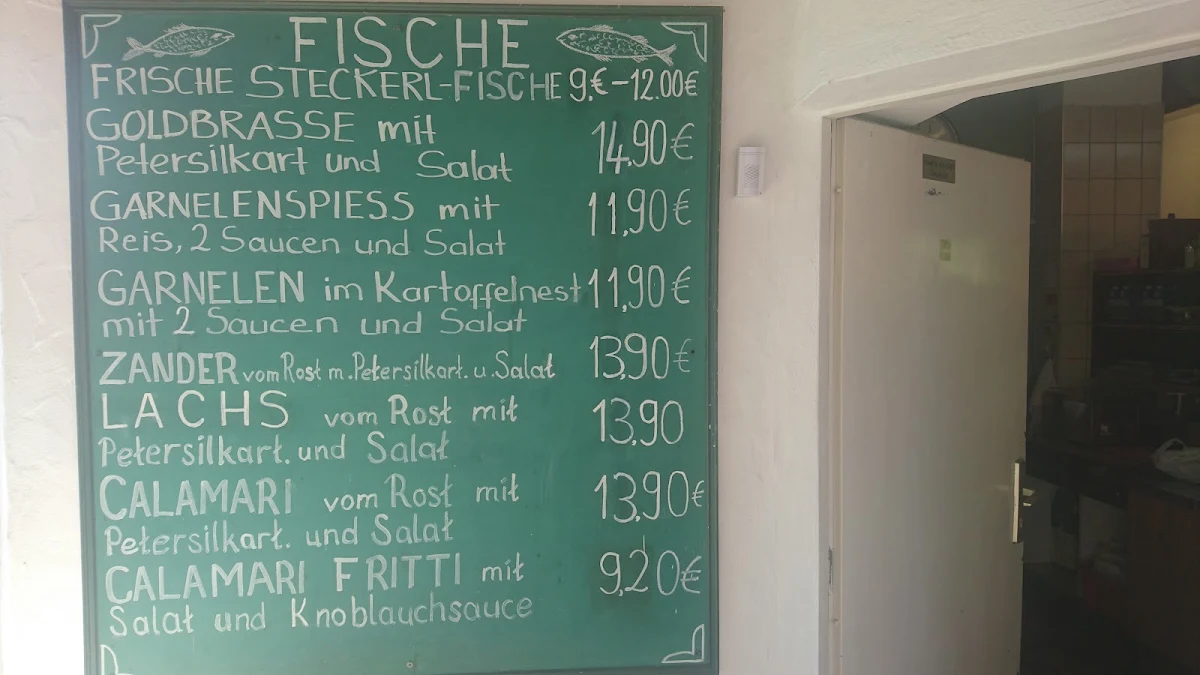 FISCHE
FRISCHE STECKERL-FISCHE 9.€-12.00€
GOLDBRASSE mit
Petersilkart und Salat 14,90€
GARNELENSPIESS mit
Reis, 2 Saucen und Salat 11,90€
GARNELEN im Kartoffelnest 11,90€
mit 2 Saucen und Salat
ZANDER vom Rost m. Petersilkart. u. Salat 13,90€
LACHS vom Rost mit 13,90
Petersilkart. und Salat
CALAMARI vom Rost mit 13,90€
Petersilkart. und Salat
CALAMARI FRITTI mit 9,20€
Salat und Knoblauchsauce